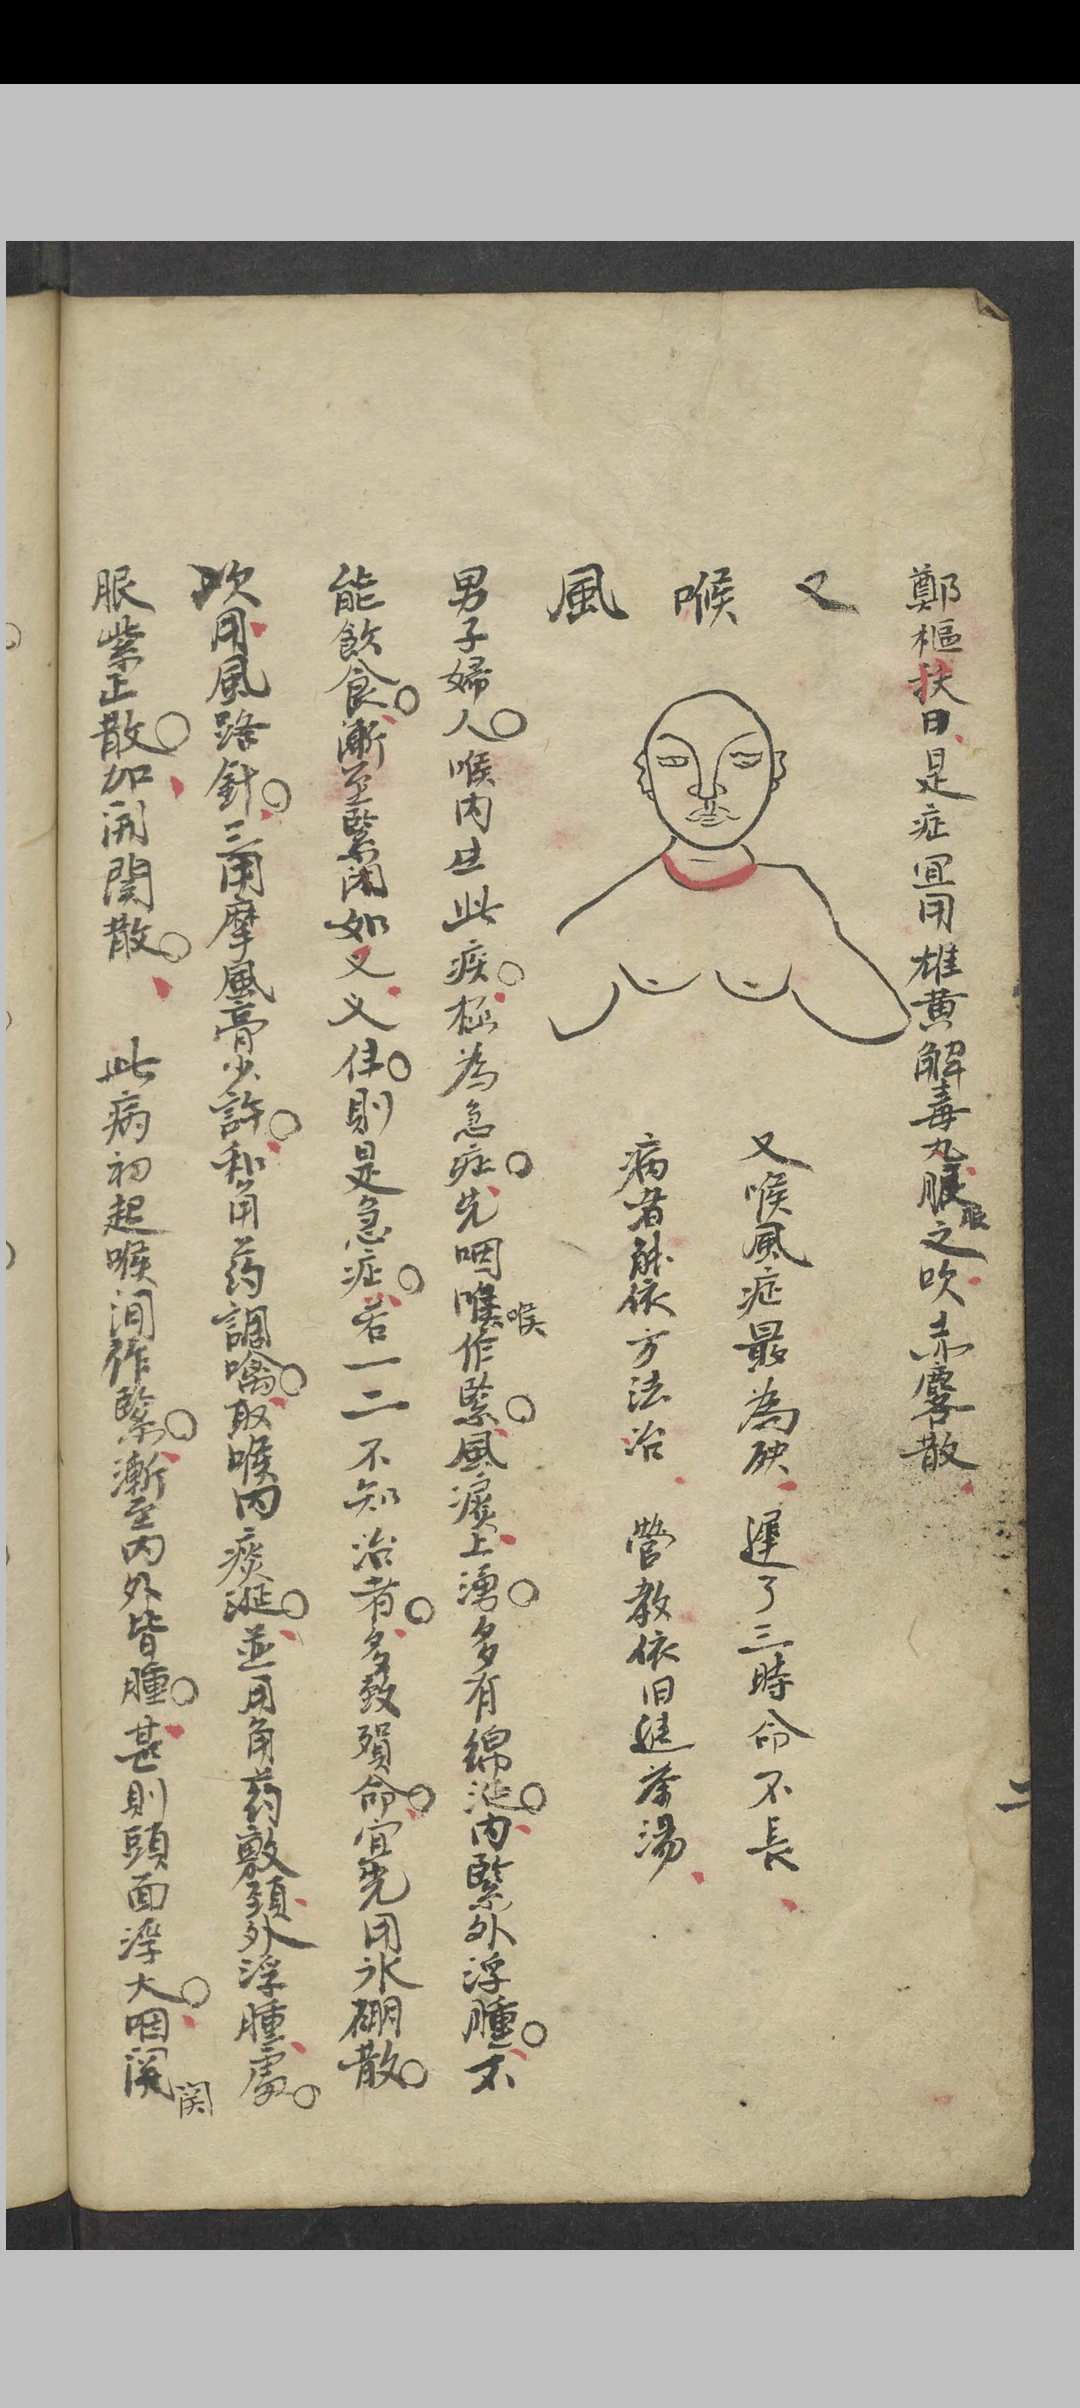 鄭樞扶曰是症宜用雄黄解毒丸服之吹赤麝散
服
叉喉風
叉喉風症最為殃 遲了三時命不長
病者能依方法治 營教依旧進茶湯
男子婦人喉内生此疾極為急症先咽喉作緊風痰上湧多有綿涎内緊外浮腫不
喉
能飲食漸至緊闭如叉叉住則是急症若一二不知治者多致殞命宜先用氷硼散
吹用風路針三用摩風膏少許和角药調噙取喉内痰涎並用角药敷頸外浮腫處
服紫正散加開関散 此病初起喉间作緊漸至内外皆腫甚則頭面浮大咽関
関
二